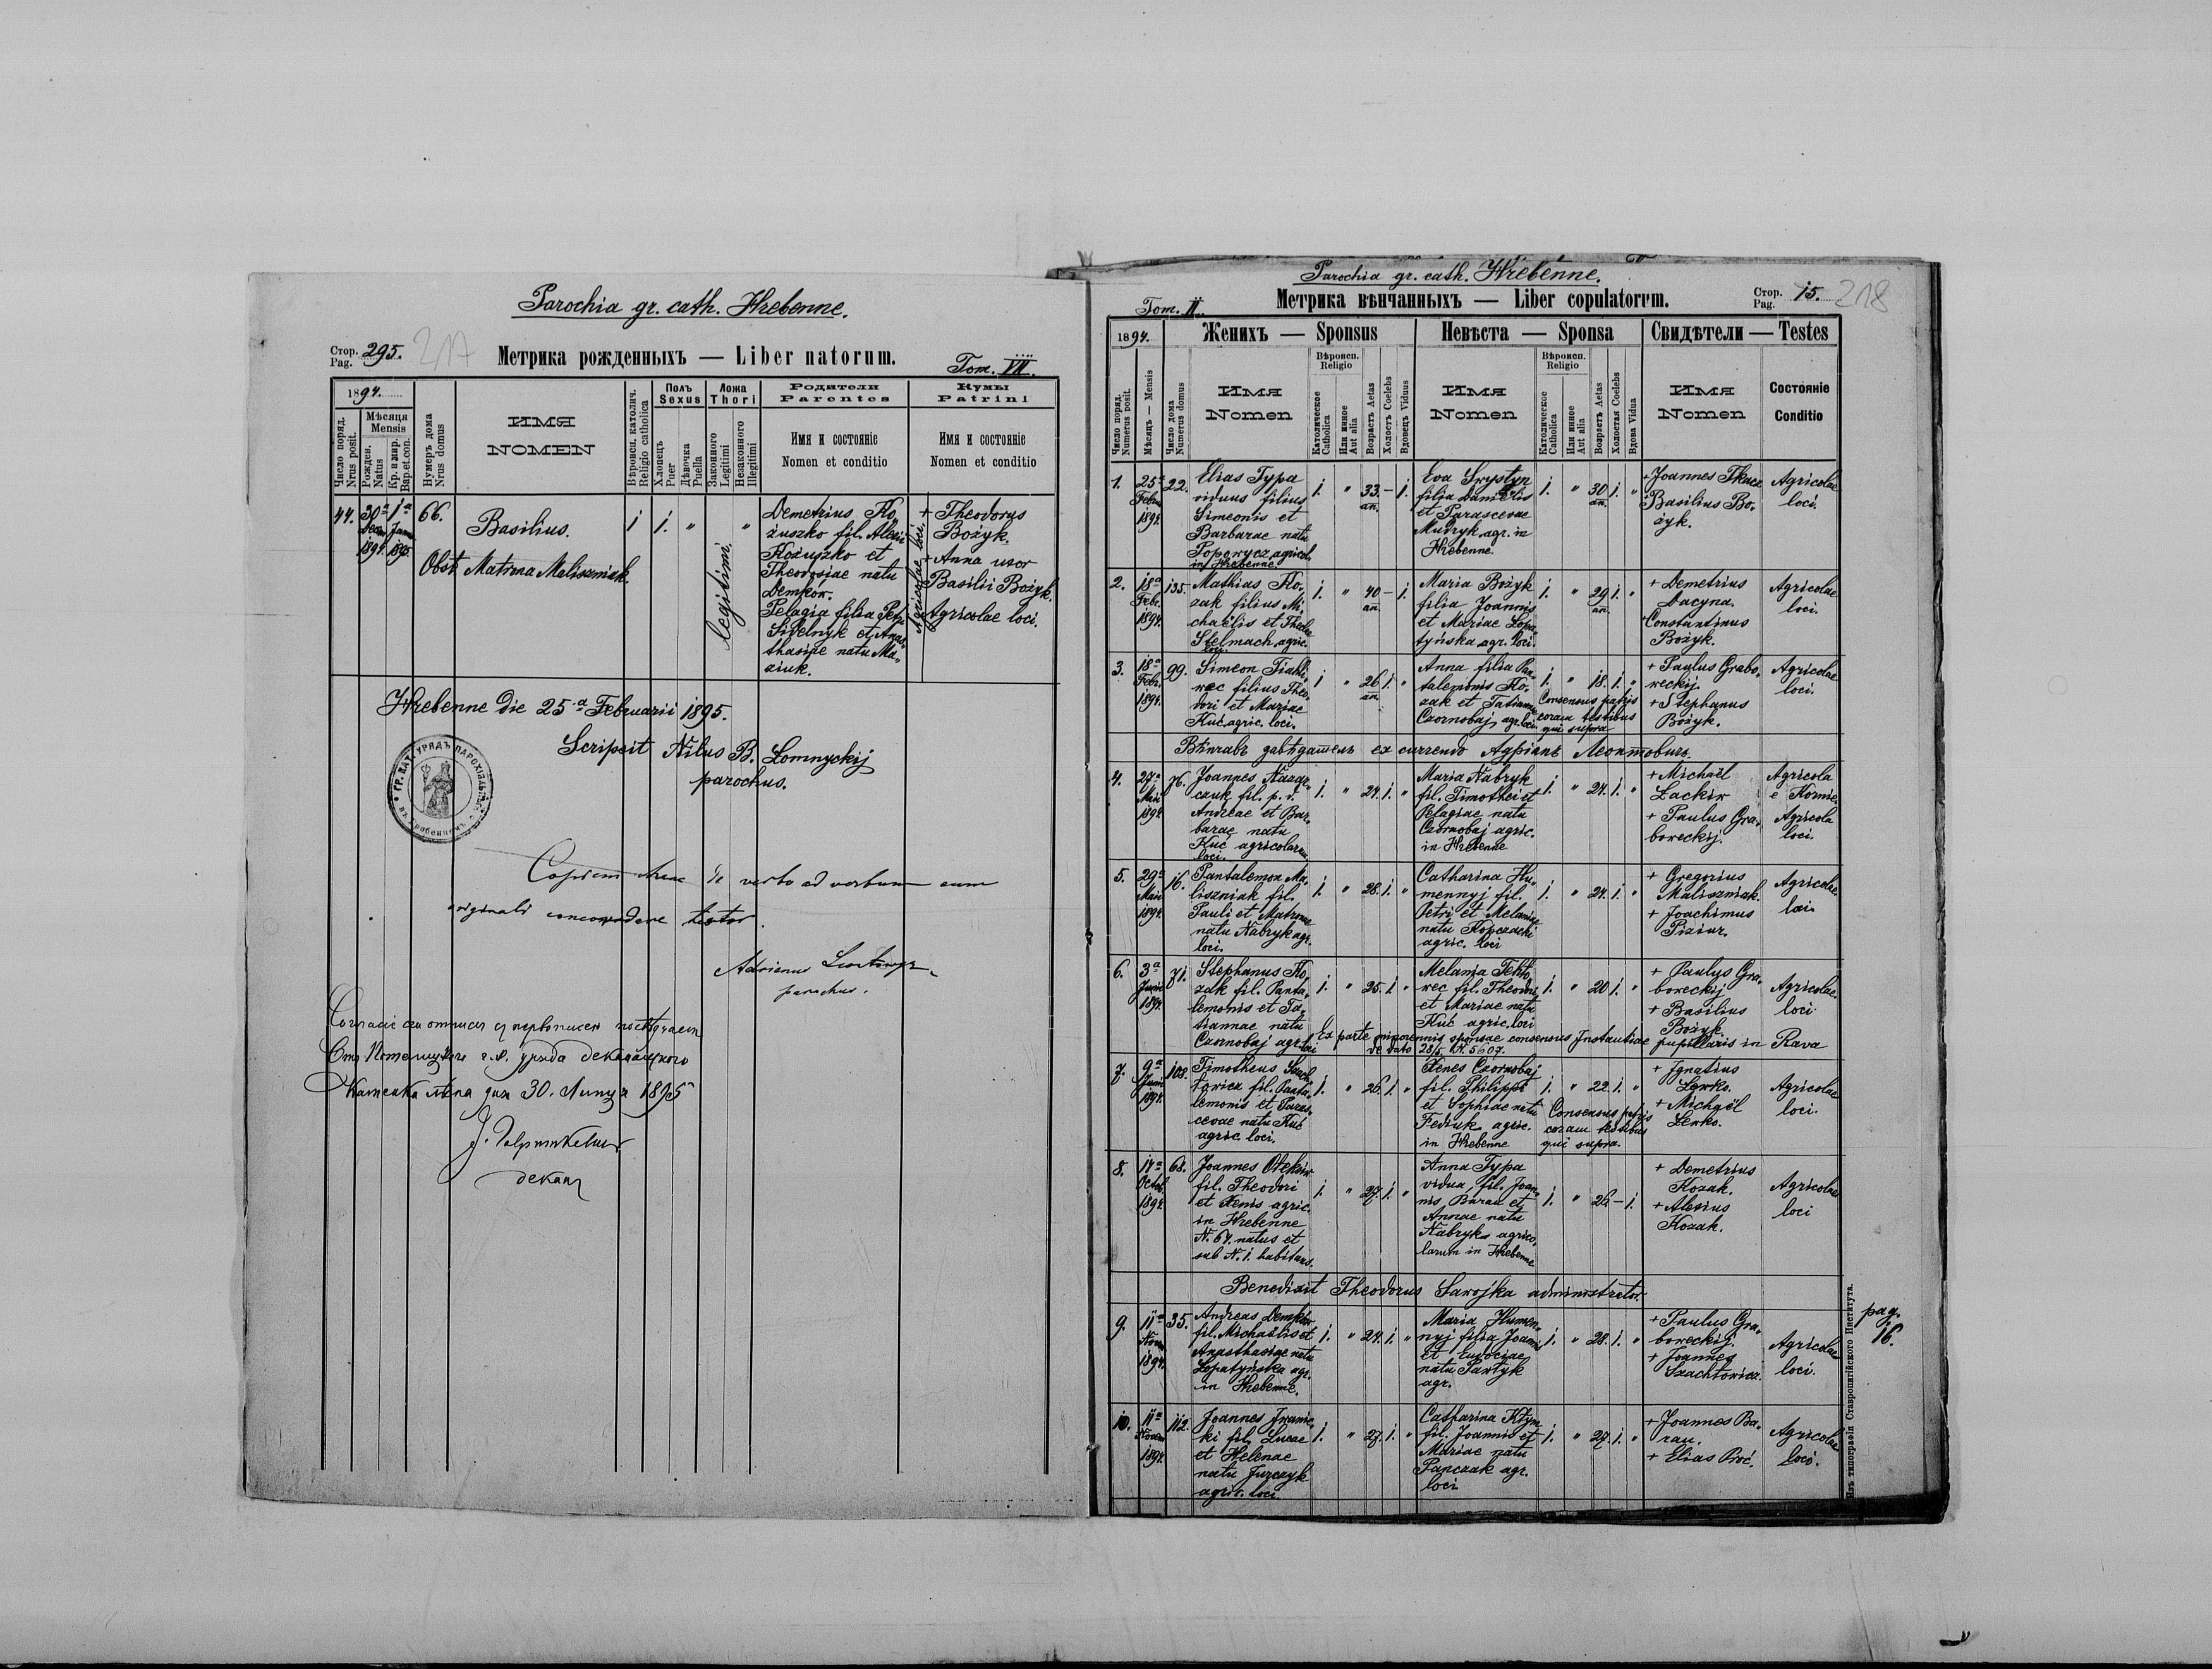 Parochia gr. cath. Hrebenne.
Стор. Pag. 295.
217
Метрика рожденныхъ — Liber natorum.
Tom. VII.
1894.
Число поряд. Nrus posit.
Мѣсяця Mensis
Рожден. Natus
Кр. и мир. Bap.et.con.
Нумеръ дома Nrus domus
ИМЯ
NOMEN
Вѣроисп. католич. Religio catholica
Полъ Sexus
Хлопецъ Puer
Дѣвочка Puella
Ложа Thori
Законного Legitimi
Незаконного Illegitimi
Родители Parentes
Имя и состояніе
Nomen et conditio
Кумы Patrini
Имя и состояніе
Nomen et conditio
44. 30a Decem 1894. 1a Janu 1895. 66.
Basilius.
Obst. Matrona Maliszniak.
1 1. " legitimi. "
Demetrius Ko-
żuszko fil. Alexii
Kożuszko et
Theodosiae natu
Demków.
Pelagia filia Petri
Sidelnyk et Anas-
thasiae natu Ma-
ziuk.
Agricolae loci.
+ Theodorus
Bożyk.
+ Anna uxor
Basilii Bożyk.
Agricolae loci.
Hrebenne Die 25a Februarii 1895.
Scripsit Nilus B. Łomnyckij
parochus.
ГР. КАТ. УРЯДЪ ПАРОХІАЛЬНЫЙ
въ Гребенномъ
Copiam hanc de verbo ad verbum cum
originali concordare testor.
Adrianus
parochus.
декан
30. 1895
Parochia gr. cath. Hrebenne.
Tom. II.
Метрика вѣнчанныхъ — Liber copulatorum.
Стор. Pag. 15.
218
1894.
Женихъ — Sponsus
Невѣста — Sponsa
Свидѣтели — Testes
Число поряд. Numerus posit.
Мѣсяцъ — Mensis
Число дома Numerus domus
Имя
Nomen
Вѣроисп. Religio
Католическое Catholica
Или инное Aut alia
Возрастъ Aetas
Холостъ Coelebs
Вдовецъ Viduus
Имя
Nomen
Вѣроисп. Religio
Католическое Catholica
Или инное Aut alia
Возрастъ Aetas
Холостая Coelebs
Вдова Vidua
Имя
Nomen
Состояніе
Conditio
1. 25a Febru 1894. 22.
Elias Typa
viduus filius
Simeonis et
Barbarae natu
Popowycz agricol.
in Hrebenne.
1. " 33 an. – 1.
Eva Hrystyn
filia Danielis
et Parascevae
Mudryk agr. in
Hrebenne.
1. " 30 an. 1. "
+ Joannes Tkacz
+ Basilius Bo-
żyk.
Agricolae
loci.
2. 18a Febr. 1894. 135.
Mathias Ko-
zak filius Mi-
chaëlis et Theclae
Stelmach agric.
loci.
1. " 40 an. – 1.
Maria Bożyk
filia Joannis
et Mariae Łopa-
tyńska agr. loci.
1. " 29 an. 1. "
+ Demetrius
Dacyna.
+ Constantinus
Bożyk.
Agricolae
loci.
3. 18a Febr. 1894. 99.
filius Theo-
dori et Mariae
Kuć agric. loci.
1 " 26 an. 1. "
Anna filia Pan-
talemonis Ko-
zak et Tatiannae
Czornobaj agr. loci
1. " 18. 1. "
Consensus patris
coram testibus
qui supra
+ Paulus Grabo-
reckij.
+ Stephanus
Bożyk.
Agricolae
loci.
Вѣнчавъ завѣдатель ex currendo Адріанъ Леонтовичъ
4. 27a Maii 1894. 76.
Joannes Nazar-
czuk fil. p. d.
Andreae et Bar-
barae natu
Kuć agricolarum
loci.
1. " 24. 1. "
Maria Nabryk
fil. Timothei et
Pelagiae natu
Czornobaj agric.
in Hrebenne
1. " 24. 1. "
+ Michaël
+ Paulus Gra-
boreckij.
Agricola
e Kornie.
Agricola
loci.
5. 29a Maii 1894. 16.
Pantalemon Ma-
liszniak fil.
Pauli et Matronae
natu Nabryk agr.
loci.
1. " 28. 1. "
Catharina Hu-
mennyj fil.
Petri et Melaniae
natu Kopczacki
agric. loci
1. " 24. 1. "
+ Gregorius
Maliszniak.
+ Joachimus
Piziur.
Agricolae
loci.
6. 3a Junii 1894. 71.
Stephanus Ko-
zak fil. Panta-
lemonis et Ta-
tiannae natu
Czornobaj agr. loci
1. " 25. 1. "
Melania
fil. Theodori
et Mariae natu
Kuć agric. loci
1. " 20 1. "
+ Paulus Gra-
boreckij
+ Basilius
Bożyk.
Agricolae
loci
Ex parte minorennis sponsae consensus Instantiae pupillaris in Rava
de dato 28/5 N. 5607.
7. 9a Junii 1894. 108.
Timotheus
fil. Panta-
lemonis et Paras-
cevae natu Kuć
agric. loci.
1. " 26. 1. "
Xenes Czornobaj
fil. Philippi
et Sophiae natu
Fediuk agric.
in Hrebenne
1. " 22. 1. "
Consensus patris
coram testibus
qui supra.
+ Ignatius
Łewko.
+ Michaël
Łewko.
Agricolae
loci.
8. 14a Octob. 1894. 68.
Joannes
fil. Theodori
et Xenis agric.
in Hrebenne
N. 67. natus et
sub N. 1. habitans.
1. " 27. 1. "
Anna Typa
vidua fil. Joan-
nis Baran et
Annae natu
Nabryk agrico-
larum in Hrebenne
1. " 26 – 1.
+ Demetrius
Kozak.
+ Alexius
Kozak.
Agricolae
loci
Benedixit Theodorus Sawojka administrator.
9. 11a Novem 1894. 35.
Andreas Demków
fil. Michaëlis et
Anasthasiae natu
Łopatyńska agr.
in Hrebenne.
1. " 24. 1. "
Maria Humen-
nyj filia Joannis
et Eudociae
natu Pawłyk
agr.
1. " 28. 1. "
+ Paulus Gra-
boreckij.
+ Joannes
Szachtowicz.
Agricolae
loci.
10. 11a Novem 1894. 112.
Joannes Iwanic-
ki fil. Lucae
et Helenae
natu Jurczyk
agric. loci.
1. " 27. 1. "
Catharina Kłym
fil. Joannis et
Mariae natu
Panczak agr.
loci
1. " 27. 1. "
+ Joannes Ba-
ran.
+ Elias Proć.
Agricolae
loci.
pag.
16.
Изъ типографіи Ставропигійского Института.